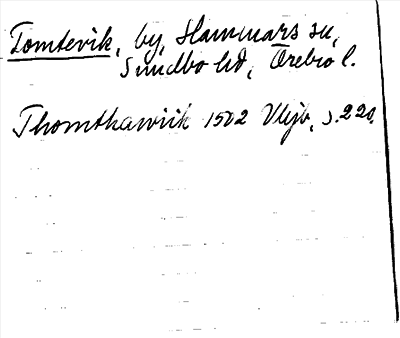 Tomtevik, by, Hammars sn,
Sundbo hd, Örebro l.
Thomthawiik 1502 Vljb, s. 220.